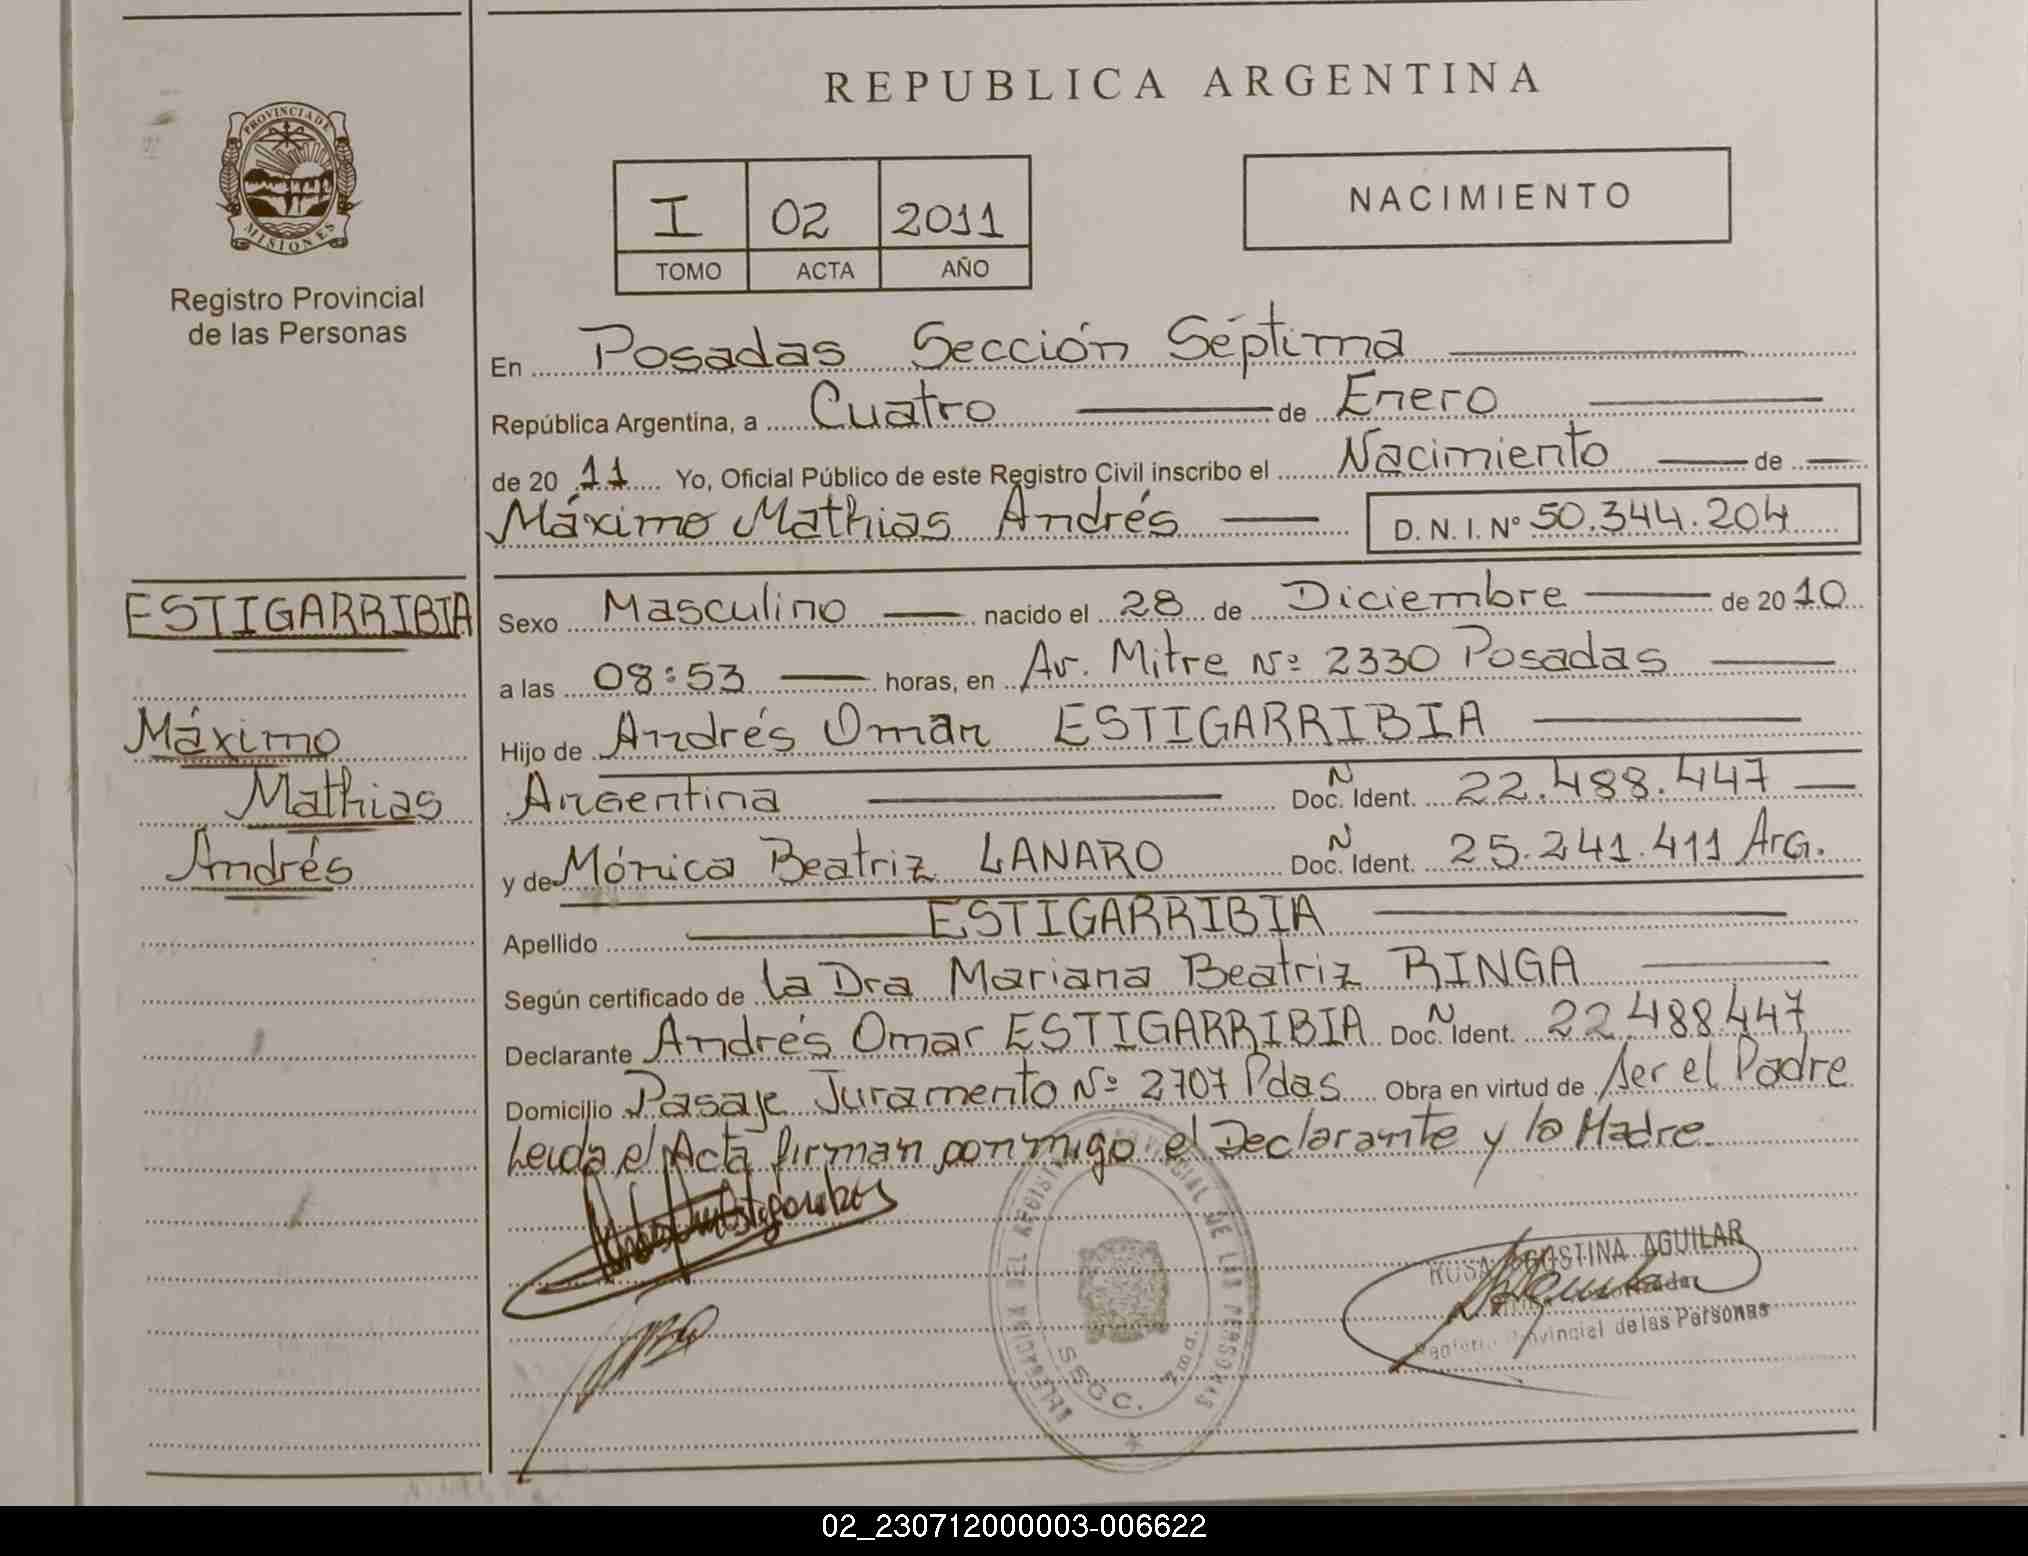 REPUBLICA ARGENTINA
PROVINCIA DE
MISIONES
Registro Provincial
de las Personas
I 02 2011
TOMO ACTA AÑO
NACIMIENTO
En Posadas Sección Séptima
República Argentina, a Cuatro de Enero
de 20 11 Yo, Oficial Público de este Registro Civil inscribo el Nacimiento de
Máximo Mathias Andrés D. N. I. N° 50.344.204
ESTIGARRIBIA
Máximo
Mathias
Andrés
Sexo Masculino nacido el 28 de Diciembre de 20 10
a las 08:53 horas, en Av. Mitre Nº 2330 Posadas
Hijo de Andrés Omar ESTIGARRIBIA
Argentina Doc. N Ident. 22.488.447
y de Mónica Beatriz LANARO Doc. N Ident. 25.241.411 Arg.
Apellido ESTIGARRIBIA
Según certificado de la Dra Mariana Beatriz RINGA
Declarante Andrés Omar ESTIGARRIBIA Doc. N Ident. 22.488.447
Domicilio Pasaje Juramento Nº 2707 Pdas Obra en virtud de ser el Padre
Leida el Acta firman conmigo el Declarante y la Madre.
DELEGACION DEL REGISTRO PROVINCIAL DE LAS PERSONAS
SECC. 7ma.
ROSA AGOSTINA AGUILAR
Registro Provincial de las Personas
02_230712000003-006622